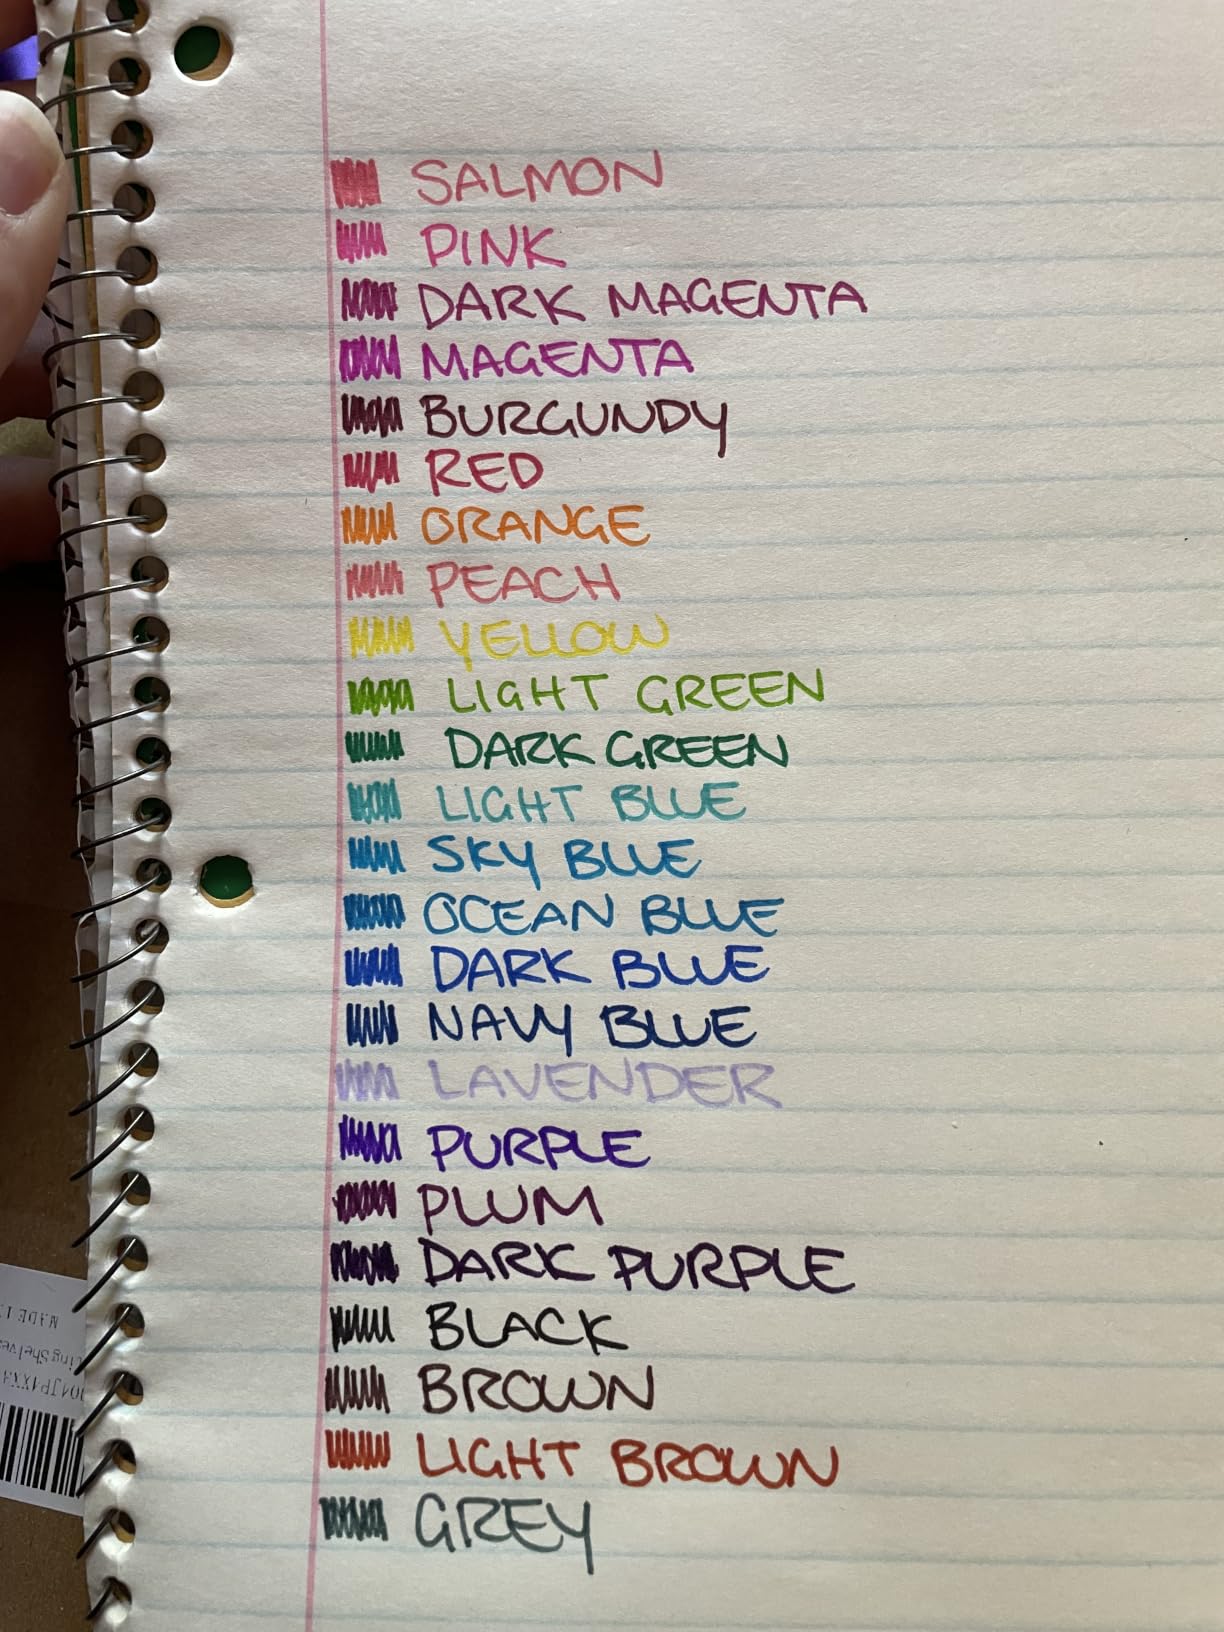 SALMON
PINK
DARK MAGENTA
MAGENTA
BURGUNDY
RED
ORANGE
PEACH
YELLOW
LIGHT GREEN
DARK GREEN
LIGHT BLUE
SKY BLUE
OCEAN BLUE
DARK BLUE
NAVY BLUE
LAVENDER
PURPLE
PLUM
DARK PURPLE
BLACK
BROWN
LIGHT BROWN
GREY
MADE